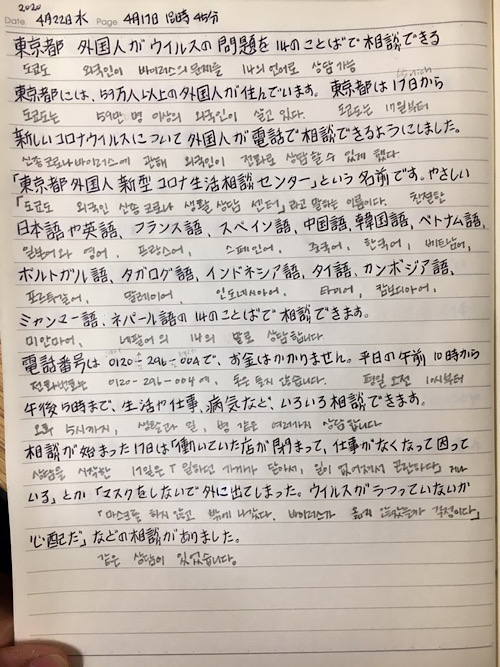 2020
Date 4月22日水 Page 4月17日 12時45分
東京都 外国人がウイルスの問題を14のことばで相談できる
도쿄도 외국인이 바이러스의 문제를 14의 언어로 상담 가능
東京都には、59万人以上の外国人が住んでいます。東京都は17日から
도쿄도는 59만 명 이상의 외국인이 살고 있다. 도쿄도는 17일부터
新しいコロナウイルスについて外国人が電話で相談できるようにしました。
신종코로나바이러스에 관해 외국인이 전화로 상담할 수 있게 했다
「東京都外国人新型コロナ生活相談センター」という名前です。やさしい
「도쿄도 외국인 신종 코로나 생활 상담 센터」라고 말하는 이름이다. 친절한
日本語や英語、フランス語、スペイン語、中国語、韓国語、ベトナム語、
일본어와 영어, 프랑스어, 스페인어, 중국어, 한국어, 베트남어,
ポルトガル語、タガログ語、インドネシア語、タイ語、カンボジア語、
포르투갈어, 말레이어, 인도네시아어, 타이어, 캄보디아어,
ミャンマー語、ネパール語の14のことばで相談できます。
미얀마어, 네팔어의 14의 말로 상담합니다
電話番号は 0120-296-004で、お金はかかりません。平日の午前10時から
전화번호는 0120-296-004에, 돈은 들지 않습니다. 평일 오전 10시부터
午後5時まで、生活や仕事、病気など、いろいろ相談できます。
오후 5시까지, 생활과 일, 병 같은 여러가지 상담합니다
相談が始まった17日は「働いていた店が閉まって、仕事がなくなって困って
상담을 시작한 17일은「일하던 가게가 닫아서, 일이 없어져서 곤란하다」
いる」とか「マスクをしないで外に出てしまった。ウイルスがうつっていないか
「마스크를 하지 않고 밖에 나갔다. 바이러스가 옮지 않았을까 걱정이다」
心配だ」などの相談がありました。
같은 상담이 있었습니다.